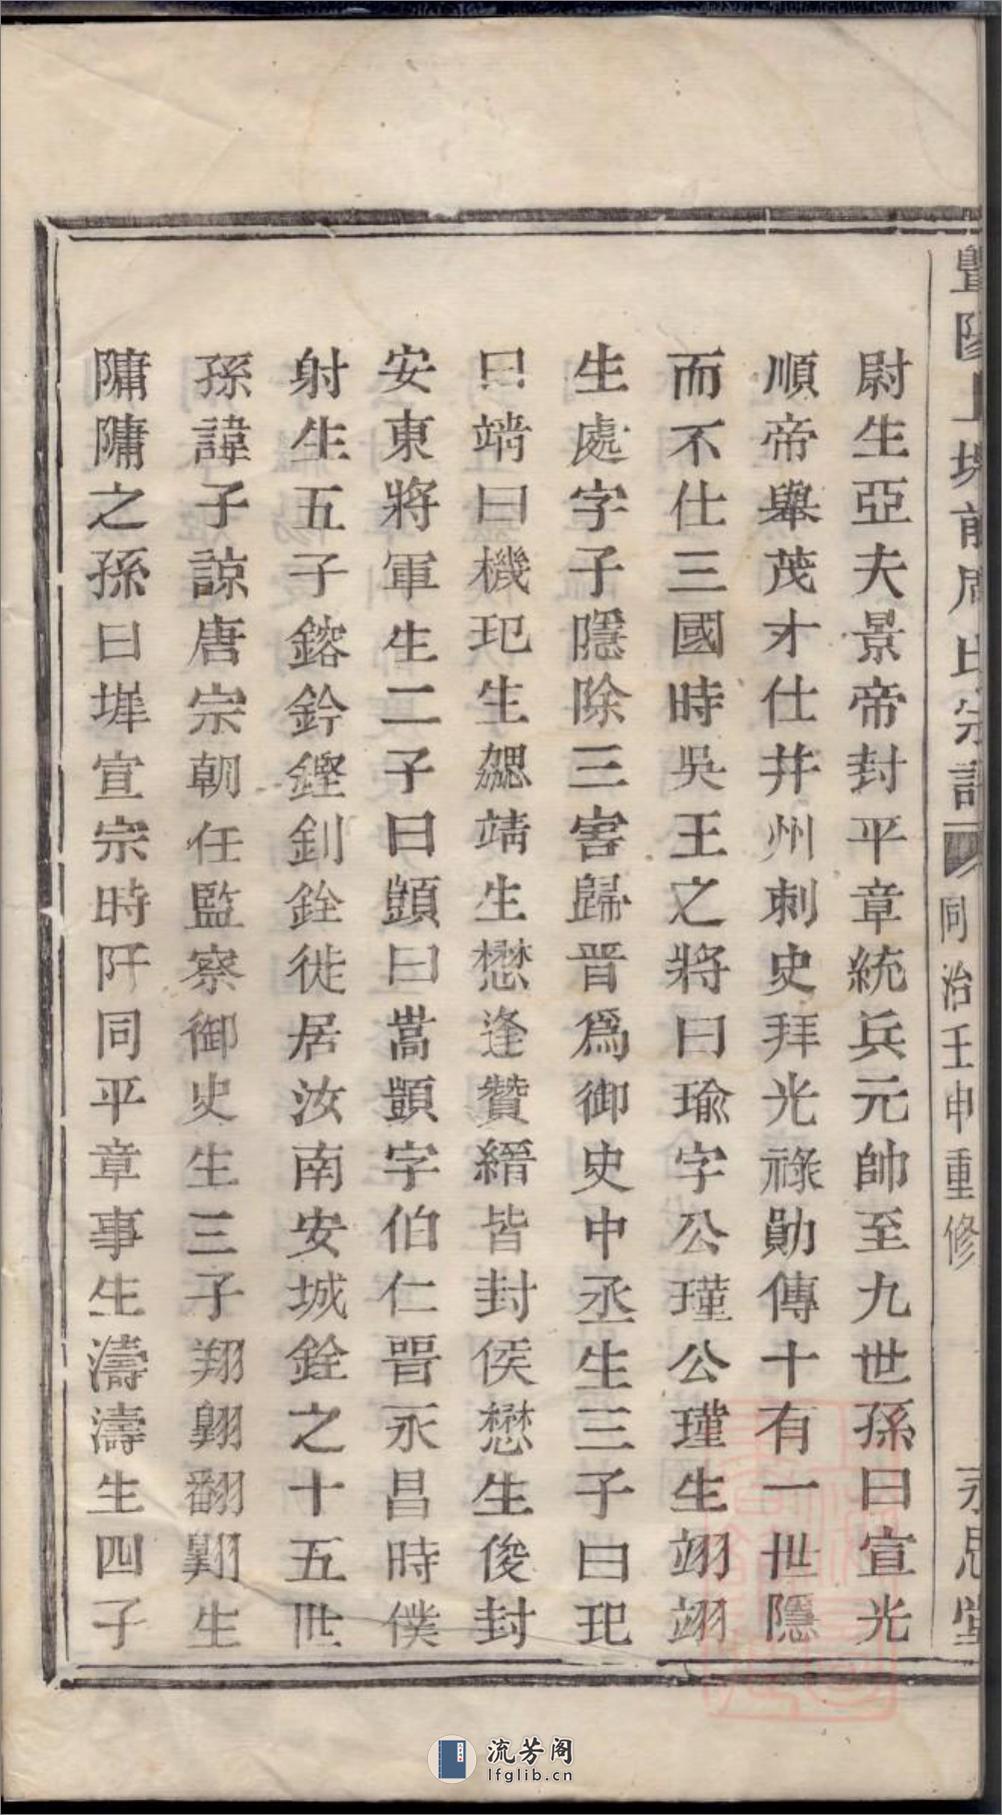 暨陽上墩前周氏宗譜 同治壬申重修 永思堂
尉生亞夫景帝封平章統兵元帥至九世孫曰宣光
順帝舉茂才仕井州刺史拜光祿勛傳十有一世隱
而不仕三國時吳王之將曰瑜字公瑾公瑾生翊翊
生處字子隱除三害歸晉爲御史中丞生三子曰玘
曰靖曰機玘生勰靖生懋逢贊縉皆封侯懋生俊封
安東將軍生二子曰顗曰嵩顗字伯仁晋永昌時僕
射生五子鎔鈐鏗釗銓徙居汝南安城銓之十五世
孫諱子諒唐宗朝任監察御史生三子翔翱翻翱生
隋隋之孫曰墀宣宗時阡同平章事生濤濤生四子
流芳阁
lfglib.cn